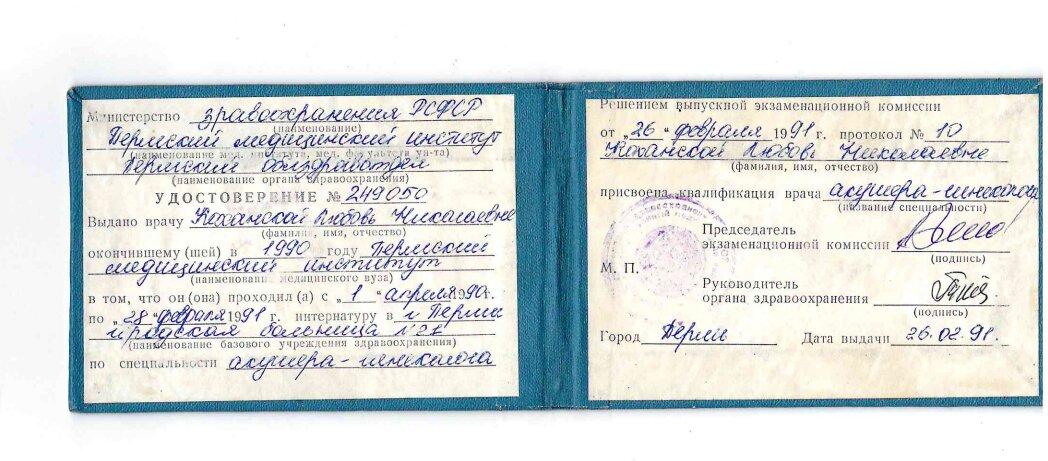 Министерство здравоохранения РСФСР
(наименование)
Пермский медицинский институт
(наименование мед. института, мед. факультета ун-та)
Пермский облздравотдел
(наименование органа здравоохранения)
УДОСТОВЕРЕНИЕ № 249050
Выдано врачу Коханской Любовь Николаевне
(фамилия, имя, отчество)
окончившему (шей) в 1990 году Пермский
медицинский институт
(наименование медицинского вуза)
в том, что он (она) проходил (а) с „1“ апреля 1990г.
по „28“ февраля 1991 г. интернатуру в г Перми
городская больница №21
(наименование базового учреждения здравоохранения)
по специальности акушера-гинеколога
Решением выпускной экзаменационной комиссии
от „26“ февраля 1991 г. протокол № 10
Коханской Любовь Николаевне
(фамилия, имя, отчество)
присвоена квалификация врача акушера-гинеколога
(название специальности)
Председатель
экзаменационной комиссии
(подпись)
М. П.
Руководитель
органа здравоохранения
(подпись)
Город Пермь Дата выдачи 26.02.91.